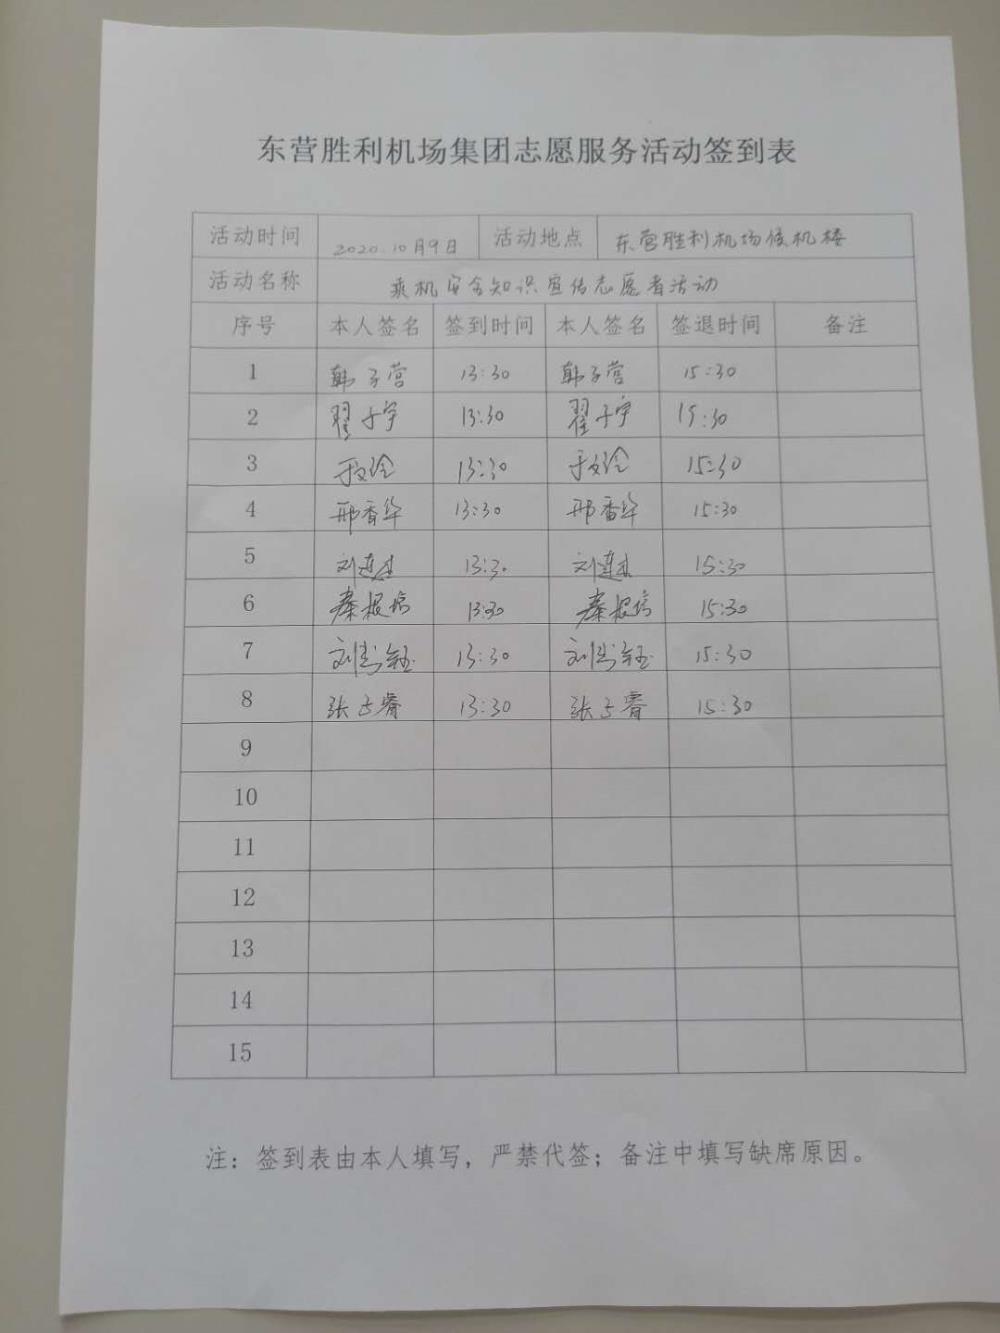 东营胜利机场集团志愿服务活动签到表
活动时间 2020.10月9日 活动地点 东营胜利机场候机楼
活动名称 乘机安全知识宣传志愿者活动
序号 本人签名 签到时间 本人签名 签退时间 备注
1 韩子营 13:30 韩子营 15:30
2 翟子宇 13:30 翟子宇 15:30
3 于文玲 13:30 于文玲 15:30
4 邢香华 13:30 邢香华 15:30
5 刘 13:30 刘 15:30
6 秦根 13:30 秦根 15:30
7 刘 钰 13:30 刘 钰 15:30
8 张 睿 13:30 张 睿 15:30
9
10
11
12
13
14
15
注：签到表由本人填写，严禁代签；备注中填写缺席原因。